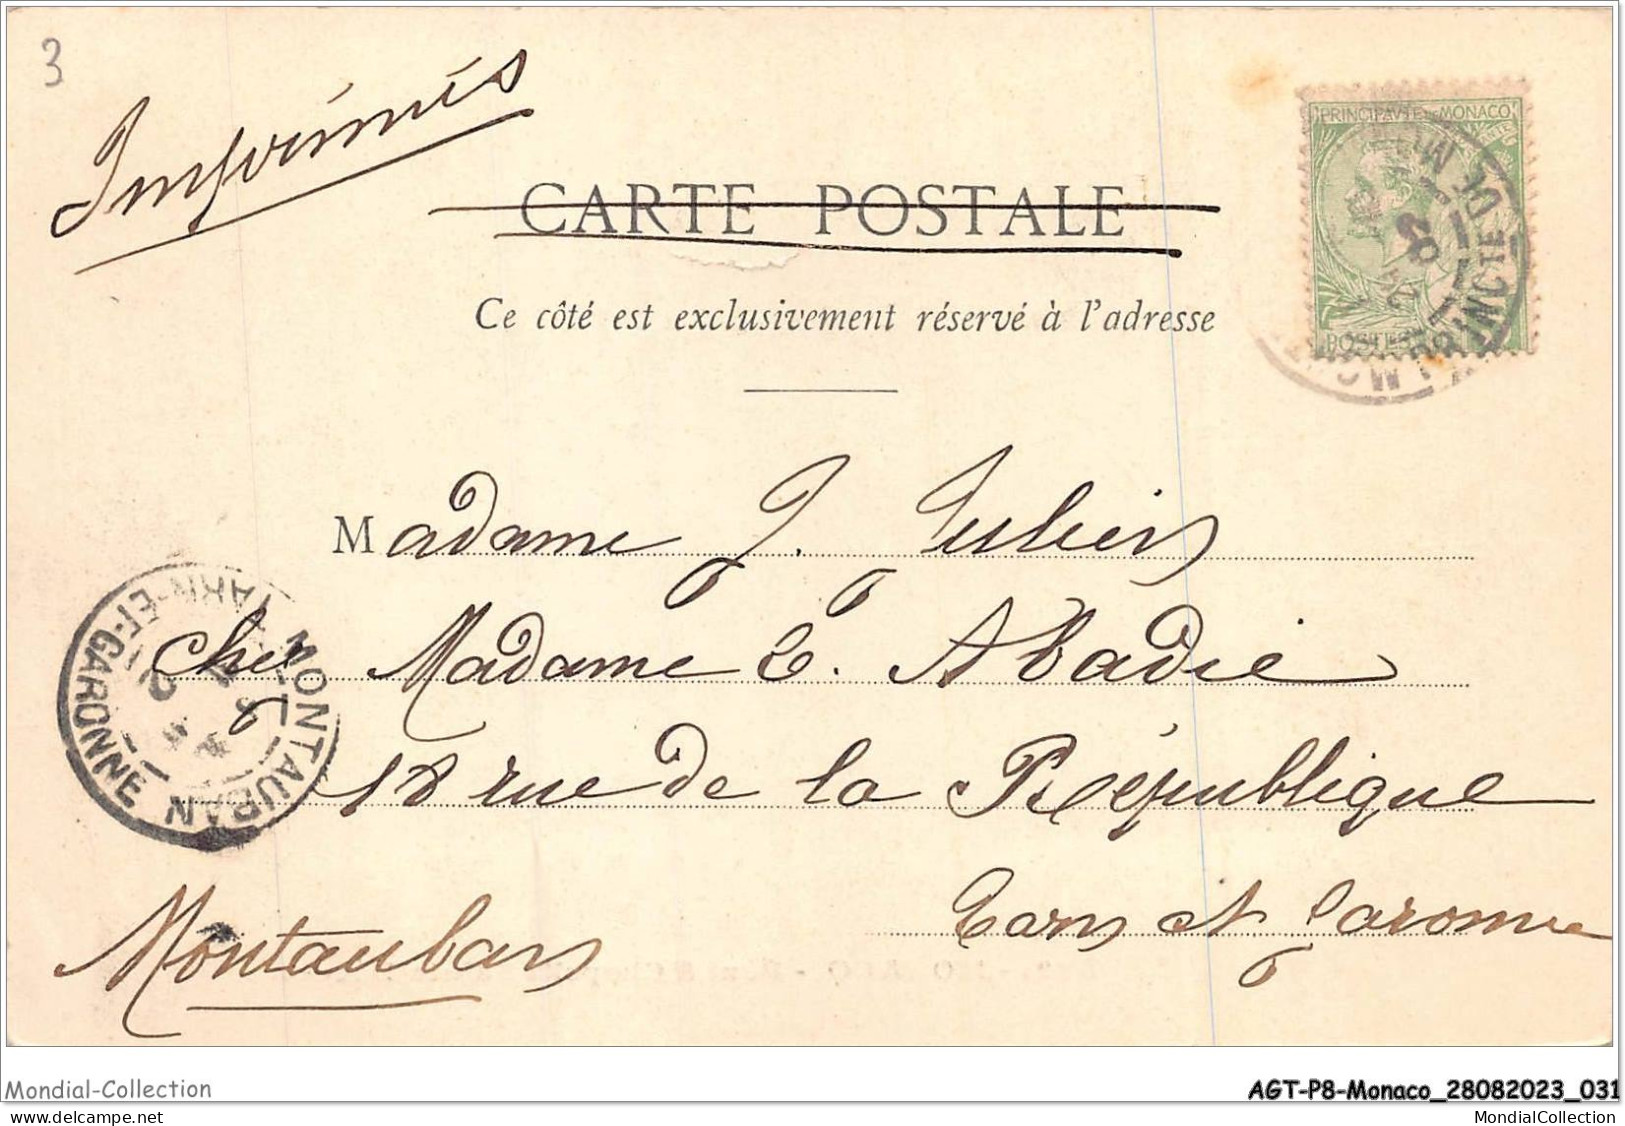 3
Imprimés
PRINCIPAUTE DE MONACO
CARTE POSTALE
Ce côté est exclusivement réservé à l'adresse
Madame J. Julien
chez Madame E. Abadie
18 rue de la République
Montauban
Tarn et Garonne
MONTAUBAN
TARN-ET-GARONNE
Mondial-Collection
AGT-P8-Monaco_28082023_031
delcampe.net
MondialCollection